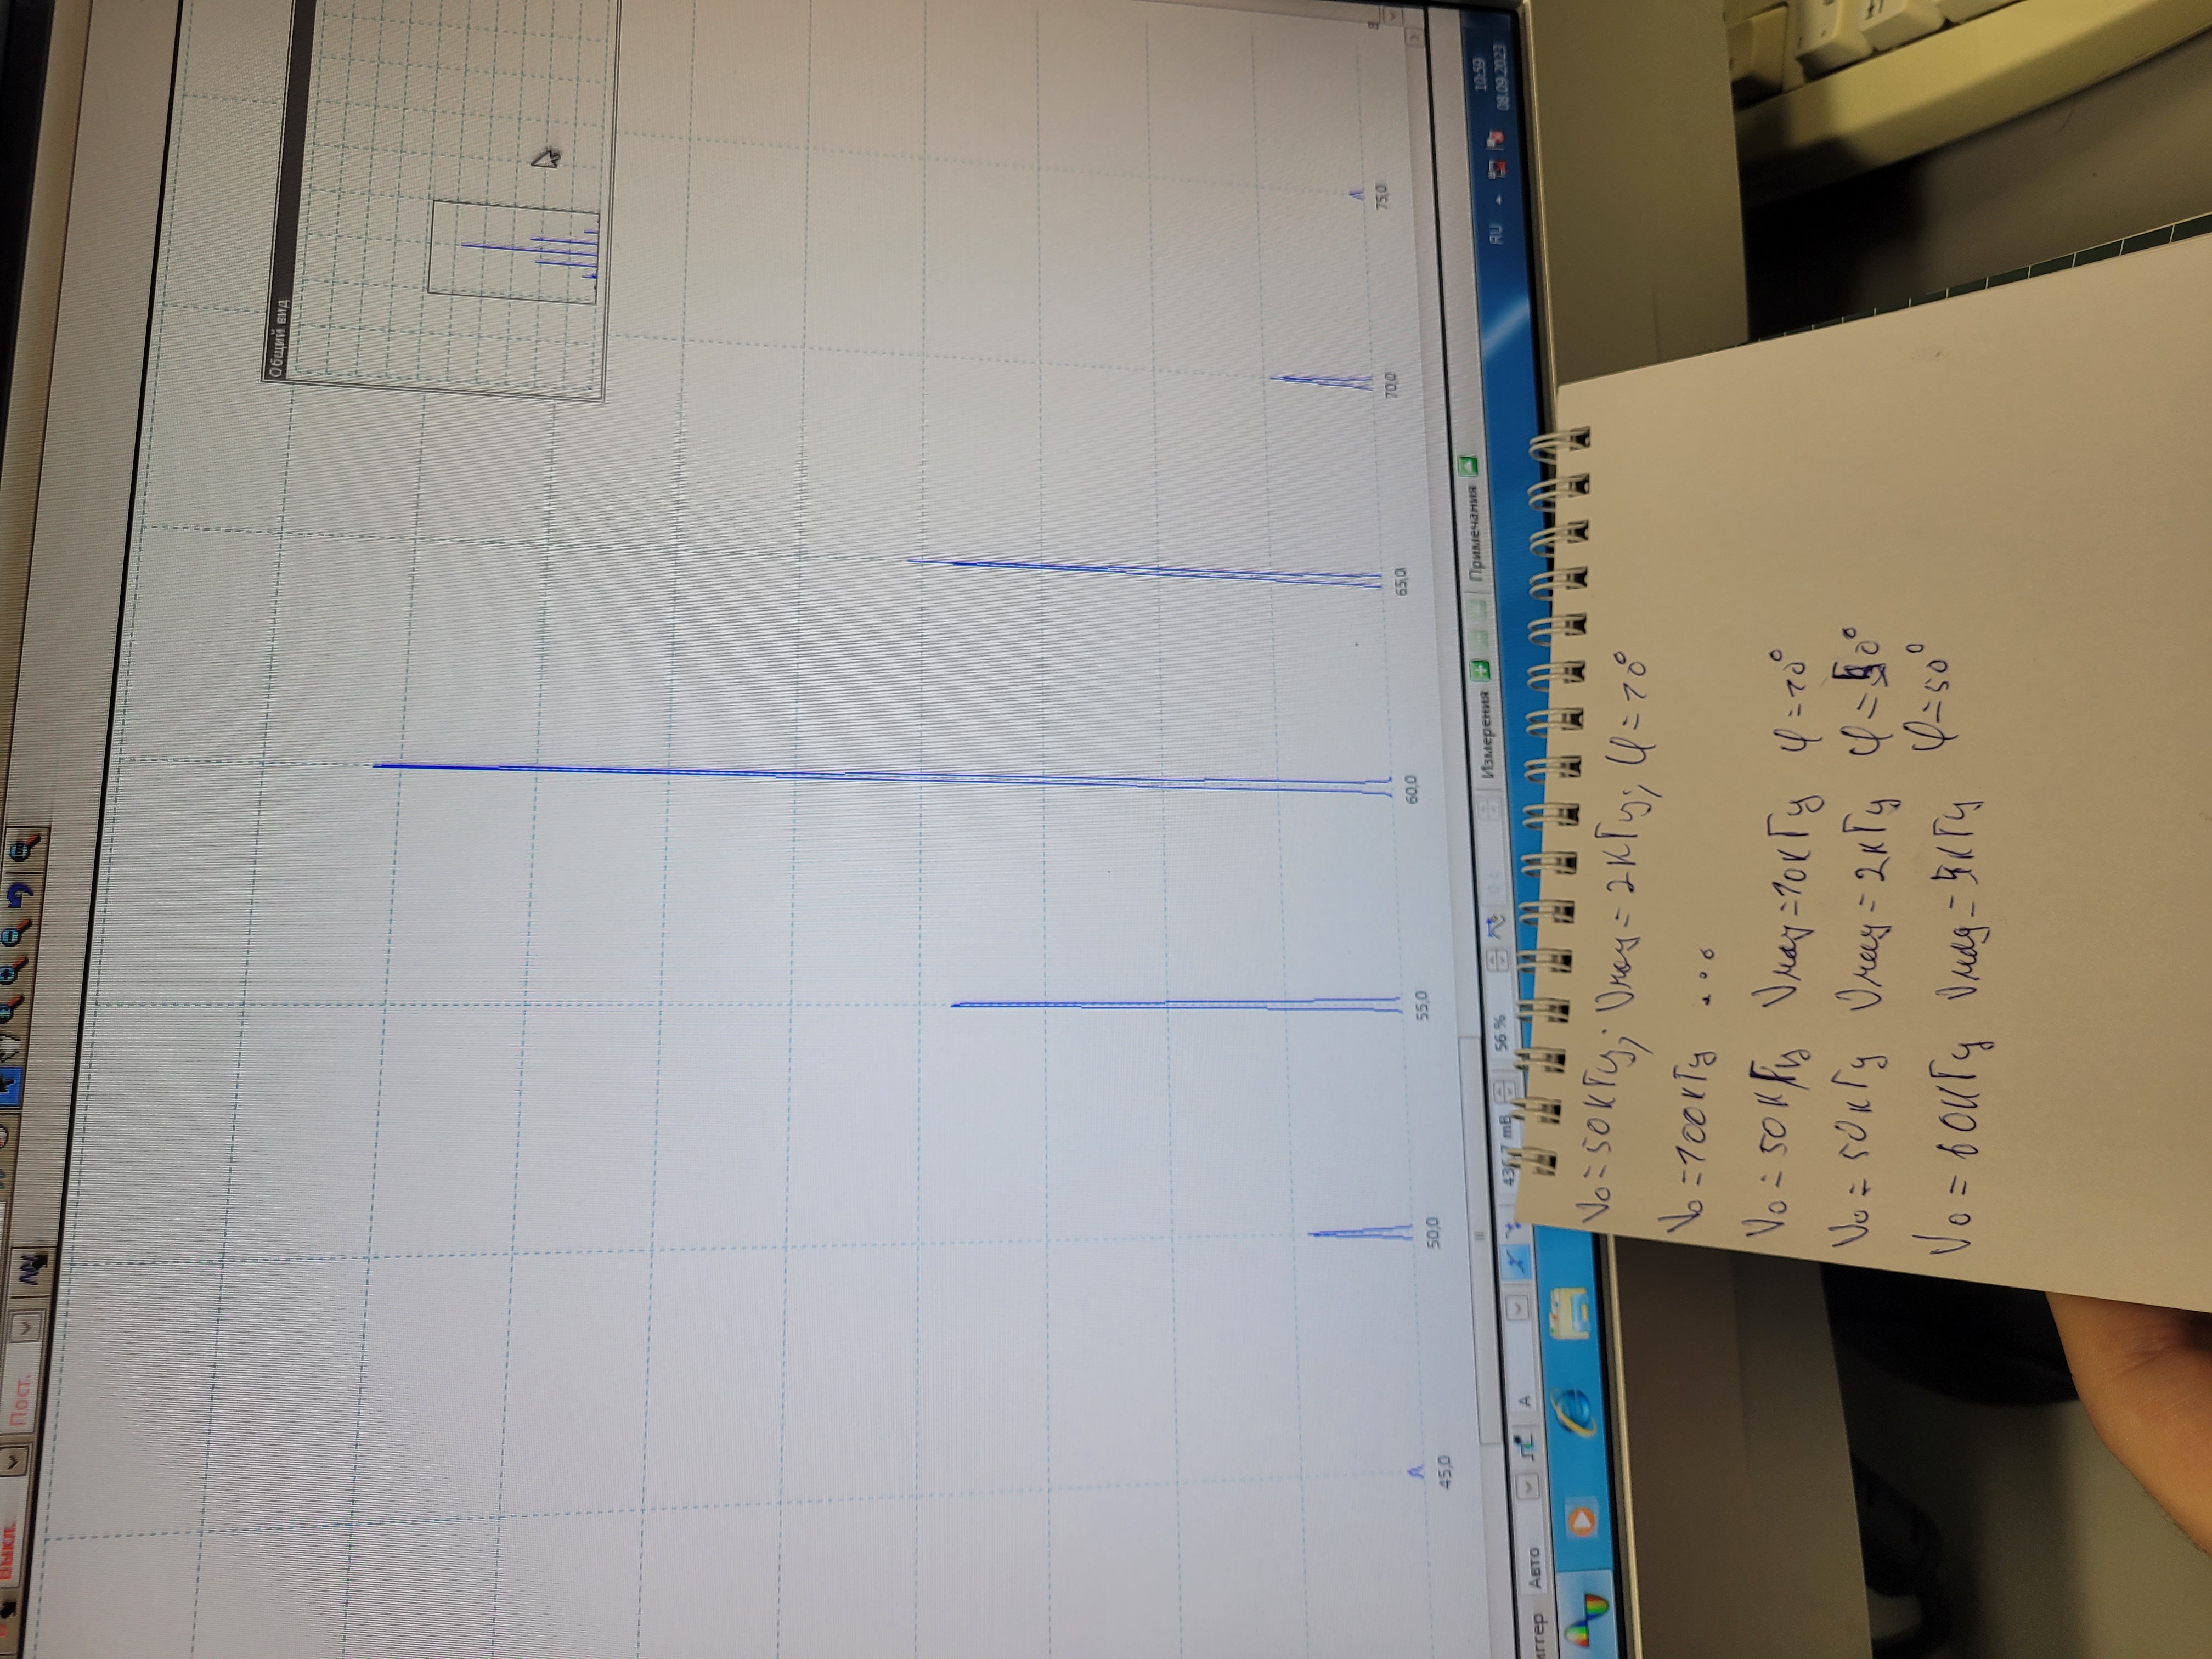 Выкл. Пост.
Общий вид
45,0 50,0 55,0 60,0 65,0 70,0 75,0
Измерения Примечания
иггер Авто A 436,7 mB 56 % 0 c
RU 10:59
08.09.2023
ν₀=50кГц; νмод=2кГц; φ=10°
ν₀=100кГц ...
ν₀=50кГц νмод=10кГц φ=10°
ν₀=50кГц νмод=2кГц φ=50°
ν₀=60кГц νмод=5кГц φ=50°